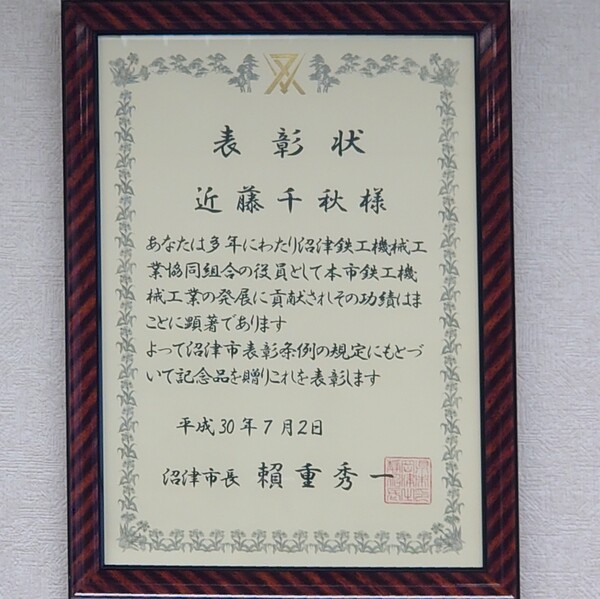 表彰状
近藤千秋様
あなたは多年にわたり沼津鉄工機械工
業協同組合の役員として本市鉄工機
械工業の発展に貢献されその功績はま
ことに顕著であります
よって沼津市表彰条例の規定にもとづ
いて記念品を贈りこれを表彰します
平成30年7月2日
沼津市長 賴重秀一